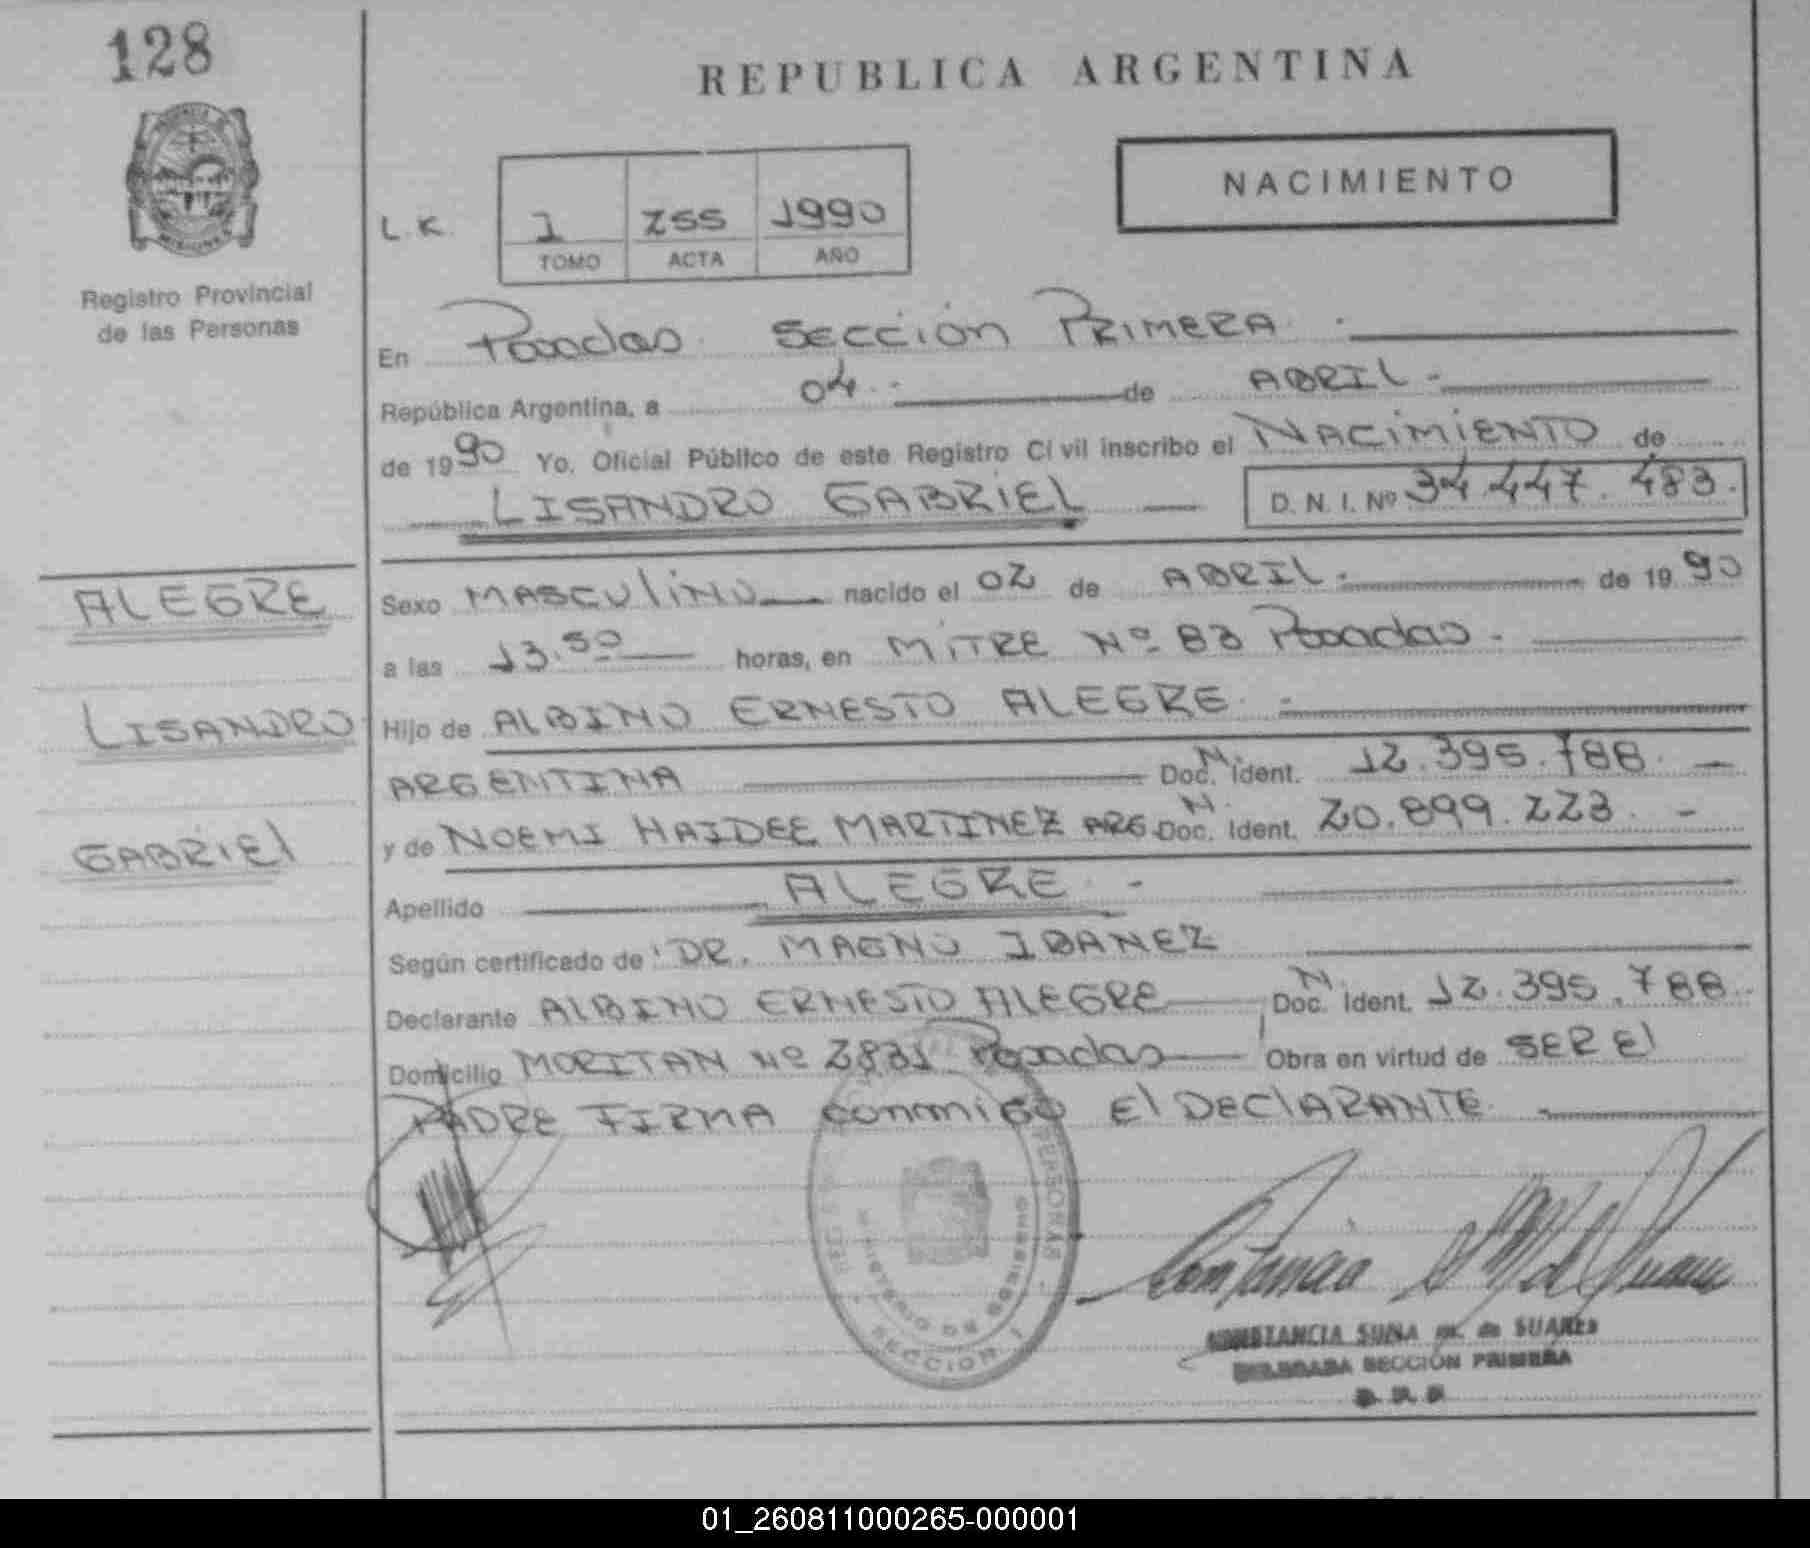 128
REPUBLICA ARGENTINA
NACIMIENTO
L.K. 1 255 1990
TOMO ACTA AÑO
Registro Provincial
de las Personas
En Posadas. Sección Primera.
República Argentina, a 04 de ABRIL.
de 1990 Yo, Oficial Público de este Registro Civil inscribo el NACIMIENTO de
LISANDRO GABRIEL D. N. I. Nº 34.447.483.
ALEGRE
LISANDRO
GABRIEL
Sexo MASCULINO nacido el 02 de ABRIL. de 1990
a las 13.50 horas, en MITRE Nº 83 Posadas.
Hijo de ALBINO ERNESTO ALEGRE.
ARGENTINA Doc. N. Ident. 12.395.788.
y de NOEMI HAIDEE MARTINEZ ARG. Doc. N. Ident. 20.899.223.
Apellido ALEGRE.
Según certificado de DR. MAGNO IBANEZ
Declarante ALBINO ERNESTO ALEGRE Doc. N. Ident. 12.395.788.
Domicilio MORITAN Nº 2831 Posadas Obra en virtud de SER El
PADRE FIRMA conmigo El DEClARANTE.
PERSONAS
MINISTERIO DE GOBIERNO
SECCION 1
CONSTANCIA SUNA de SUAREZ
DELEGADA SECCIÓN PRIMERA
01_260811000265-000001